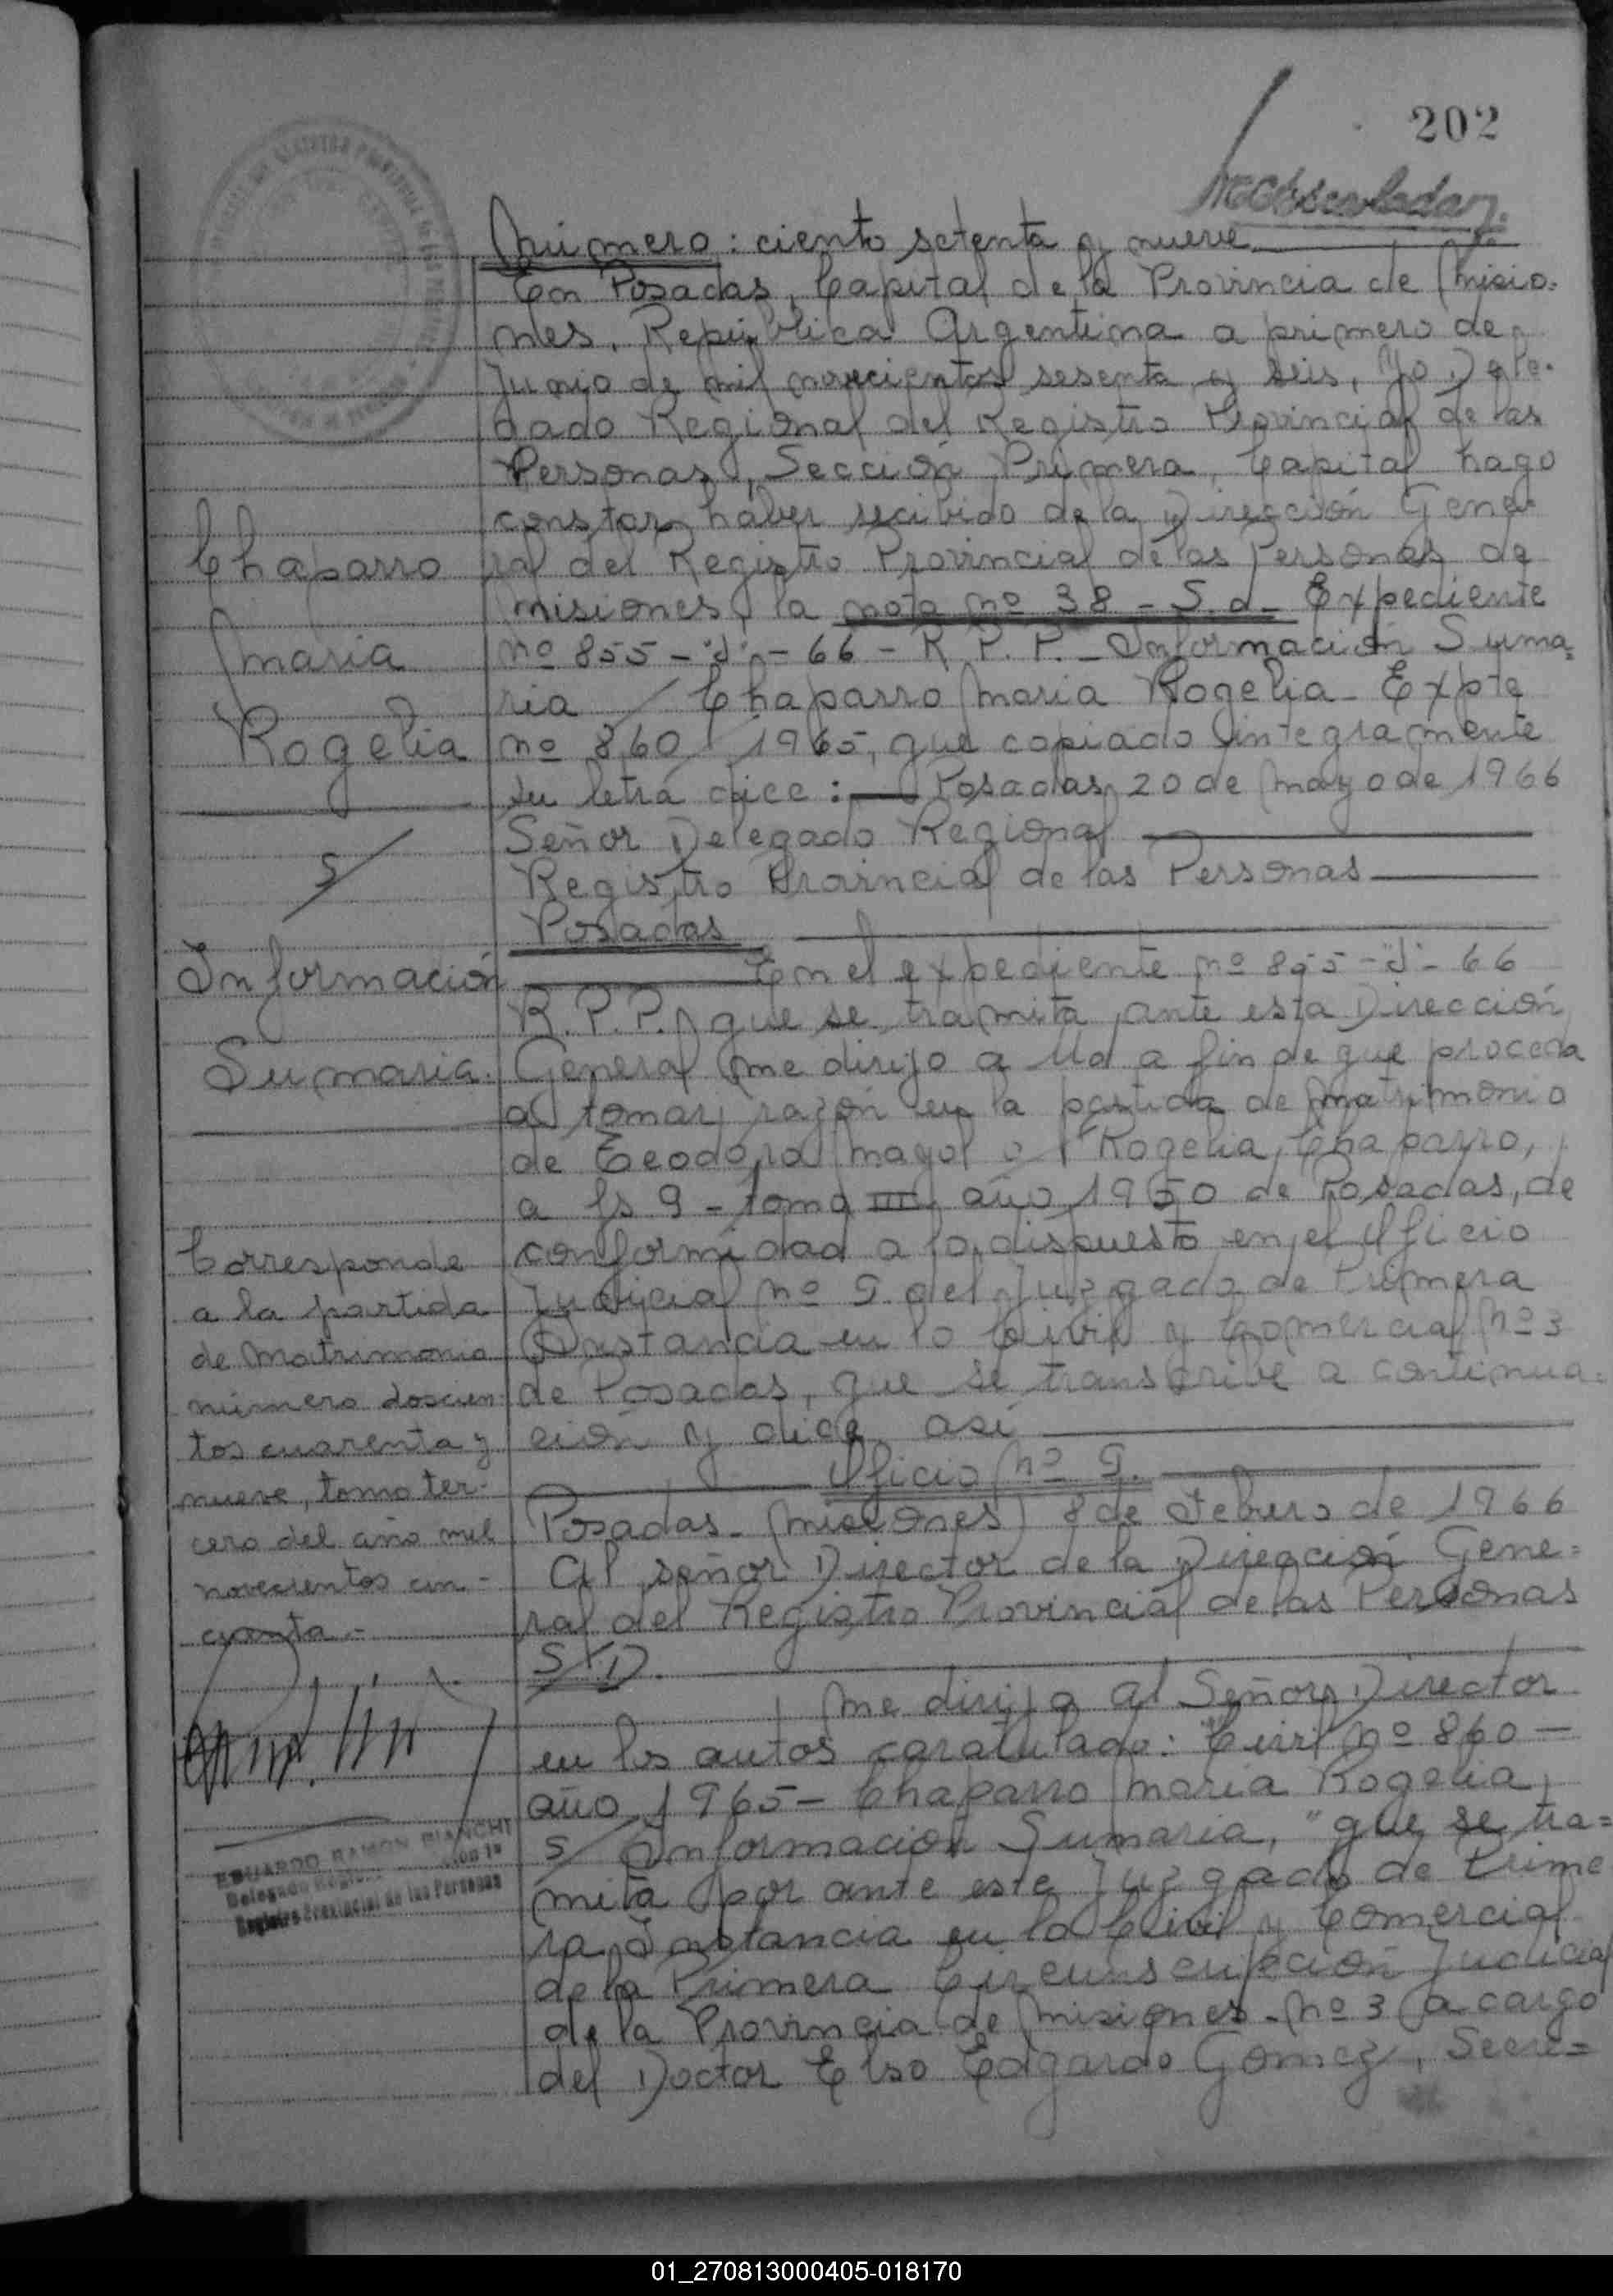 202
Número: ciento setenta y nueve
En Posadas, Capital de la Provincia de Misio-
nes, República Argentina a primero de
Junio de mil novecientos sesenta y seis, Yo Dele-
gado Regional del Registro Provincial de las
Personas, Sección Primera, Capital hago
constar haber recibido de la Dirección Gene-
ral del Registro Provincial de las Personas de
Misiones, la nota nº 38 - S.d- Expediente
nº 855 - - 66 - R.P.P. - Información Suma=
ria / Chaparro Maria Rogelia - Expte
nº 860/1965, que copiado íntegramente
su letra dice: Posadas, 20 de Mayo de 1966
Señor Delegado Regional
Registro Provincial de las Personas
Posadas
En el expediente nº 855 - - 66
R.P.P. que se tramita ante esta Dirección
General me dirijo a Ud a fin de que proceda
a tomar razón en la partida de Matrimonio
de Teodoro Mayol Rogelia Chaparro,
a fs 9 - tomo III año 1950 de Posadas, de
conformidad a lo dispuesto en el Oficio
Judicial nº 9 del Juzgado de Primera
Instancia en lo Civil y Comercial Nº 3
de Posadas, que se transcribe a continua=
ción y dice así
Oficio Nº 9.
Posadas - (Misiones) 8 de Febrero de 1966
Al señor Director de la Dirección Gene=
ral del Registro Provincial de las Personas
S/D.
Me dirijo al Señor Director
en los autos caratulado: "Civil Nº 860 -
año 1965 - Chaparro Maria Rogelia
s/ Información Sumaria," que se tra=
mita por ante este Juzgado de Prime
ra Instancia en lo Civil y Comercial
de la Primera Circunscripción Judicial
de la Provincia de Misiones - Nº 3 a cargo
del Doctor Elso Edgardo Gomez, Secre=
Chaparro
Maria
Rogelia
S/
Información
Sumaria.
Corresponde
a la partida
de Matrimonio
número doscien-
tos cuarenta y
nueve, tomo ter-
cero del año mil
novecientos cin-
cuenta.-
EDUARDO RAMON BIANCHI
Delegado
Registro Provincial de las Personas
01_270813000405-018170